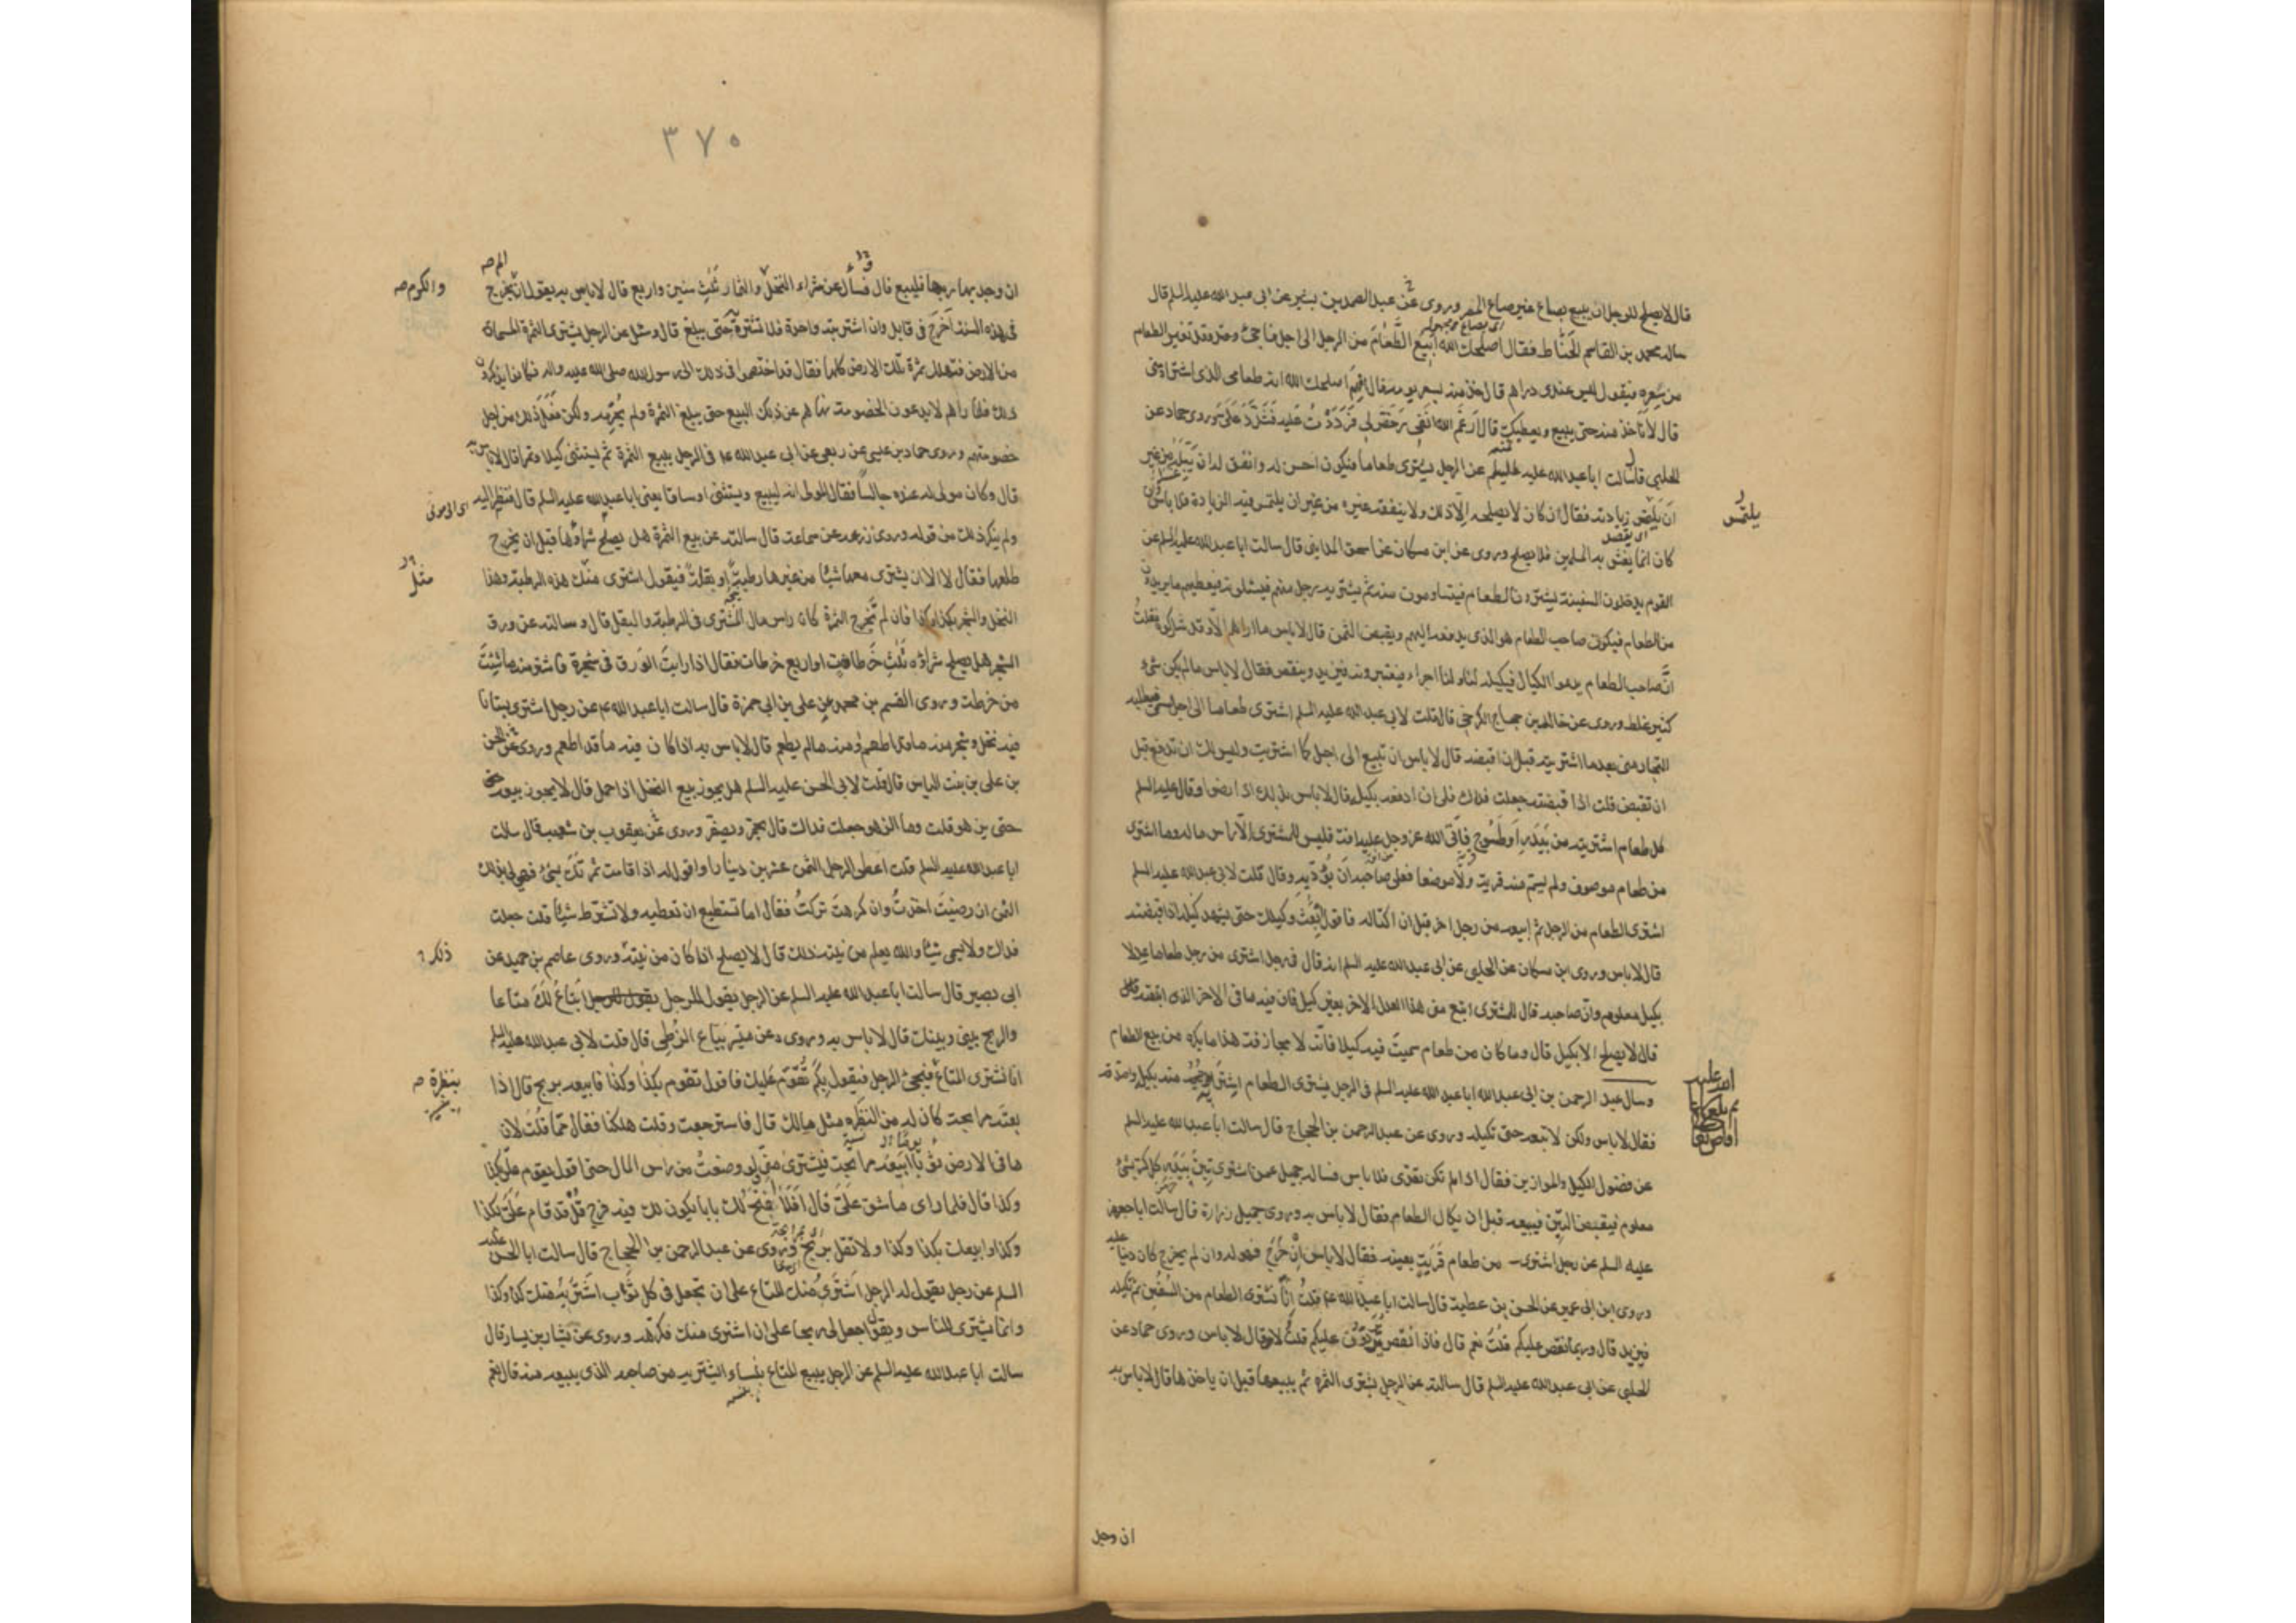 قال لا يصلح للرجل ان يبيع بصاع غير صاع المصر وروى عن عبد الصمد بن بشير عن ابى عبد الله عليه السلم قال
ساله محمد بن القاسم الحناط فقال اصلحك الله ابيع الطعام من الرجل الى اجل فاجئ وقد تغير الطعام
من سعره فيقول ليس عندى دراهم قال خذ منه بسعر يومه قال افهم اصلحك الله انه طعامى الذى اشتراه منى
قال لا تاخذ منه حتى يبيع ويعطيك قال ارغم الله انفى رخص لى فرددت عليه فشدد على وروى حماد عن
الحلبى قال سالت ابا عبد الله عليه السلم عن الرجل يشترى طعاما فيكون احسن له وانفق له ان يبله من غير
ان يلتمس زيادته فقال ان كان لا يصلحه الا ذلك ولا ينفقه غيره من غير ان يلتمس فيه الزيادة فلا باس وان
كان انما يغش به المسلمين فلا يصلح وروى عن ابن مسكان عن اسحق المداينى قال سالت ابا عبد الله عليه السلم عن
القوم يدخلون السفينة يشترون الطعام فيتساومون منه ثم يشتريه رجل منهم فيسئلونه فيعطيهم ما يريدون
من الطعام فيكون صاحب الطعام هو الذى يدفعه اليهم ويقبض الثمن قال لا باس ما اراهم الا وقد شركوه فقلت
ان صاحب الطعام يدعوا الكيال فيكيله لنا ولنا اجراء فيعتبرونه فيزيد وينقص فقال لا باس ما لم يكن شئ
كثير غلط وروى عن خالد بن حجاج الكرخى قال قلت لابى عبد الله عليه السلم اشترى طعاما الى اجل مسمى فيطلبه
التجار منى بعد ما اشتريته قبل ان اقبضه قال لا باس ان تبيع الى اجل كما اشتريت وليس لك ان تدفع قبل
ان تقبض قلت اذا قبضته جعلت فداك فلى ان ادفعه بكيله قال لا باس بذلك اذا رضوا وقال عليه السلم
كل طعام اشتريته من بيدر او طسوج فاتى الله عز وجل عليه افة فليس للمشترى الا راس ماله وما اشترى
من طعام موصوف ولم يسم منه قرية ولا موضعا فعلى صاحبه ان يؤديه وقال قلت لابى عبد الله عليه السلم
اشترى الطعام من الرجل ثم ابيعه من رجل اخر قبل ان اكتاله فاقول ابعث وكيلك حتى يشهد كيله اذا قبضته
قال لا باس وروى ابن مسكان عن الحلبى عن ابى عبد الله عليه السلم انه قال فى رجل اشترى من رجل طعاما عدلا
بكيل معلوم وان صاحبه قال للمشترى ابتع من هذا العدل الاخر بغير كيل فان فيه ما فى الاخر الذى ابتعته قال
قال لا يصلح الا بكيل قال وما كان من طعام سميت فيه كيلا فانه لا مجازفة هذا ما يكره من بيع الطعام
وسال عبد الرحمن بن ابى عبد الله ابا عبد الله عليه السلم فى الرجل يشترى الطعام اشتريه منه بكيله واصدقه
فقال لا باس ولكن لا تبعه حتى تكيله وروى عن عبد الرحمن بن الحجاج قال سالت ابا عبد الله عليه السلم
عن فضول الكيل والموازين فقال اذا لم تكن تعدى فلا باس فساله جميل عمن اشترى تبن بيدر كل كر بشئ
معلوم فيقبض التبن فيبيعه قبل ان يكال الطعام فقال لا باس به وروى جميل زرارة قال سالت ابا جعفر
عليه السلم عن رجل اشترى من طعام قرية بعينه فقال لا باس ان خرج فهو له وان لم يخرج كان دينا عليه
وروى ابن ابى عمير عن الحسن بن عطية قال سالت ابا عبد الله ع قلت انا نشترى الطعام من السفن ثم نكيله
فيزيد قال وربما نقص عليكم قلت نعم قال فاذا نقص يردون عليكم قلت لا قال لا باس وروى حماد عن
الحلبى عن ابى عبد الله عليه السلم قال سالته عن الرجل يشترى الثمرة ثم يبيعها قبل ان ياخذها قال لا باس به
اى بصاع مجهول
اى يقصد
يلتمس
ان وجد
٣٧٥
ان وجد بها ربحا فليبع قال وسال عن شراء النخل والثمار ثلث سنين واربع قال لا باس به يقول ان لم يخرج
فى هذه السنة اخرج فى قابل وان اشتريته واحدة فلا تشتره حتى يبلغ قال وسئل عن الرجل يشترى الثمرة المسماة
من الارض فتهلك ثمرة تلك الارض كلها فقال قد اختصموا فى ذلك الى رسول الله صلى الله عليه واله فكانوا يذكرون
ذلك فلما راهم لا يدعون الخصومة نهاهم عن ذلك البيع حتى يبلغ الثمرة ولم يحرمه ولكن فعل ذلك من اجل
خصومتهم وروى حماد بن عيسى عن ربعى عن ابى عبد الله ع فى الرجل يبيع الثمرة ثم يستثنى كيلا وتمرا قال لا باس به
قال وكان مولى له عنده جالسا فقال المولى انه ليبيع ويستثنى اوساقا يعنى ابا عبد الله عليه السلم قال فنظر اليه
ولم ينكر ذلك من قوله وروى زرعه عن سماعة قال سالته عن بيع الثمرة هل يصلح شراؤها قبل ان يخرج
طلعها فقال لا الا ان يشترى معها شيئا من غيرها رطبة او بقلة فيقول اشترى منك هذه الرطبة وهذا
النخل والشجر بكذا وكذا فان لم تخرج الثمرة كان راس مال المشترى فى الرطبة والبقل قال وسالته عن ورق
الشجر هل يصلح شراؤه ثلث خرطات او اربع خرطات فقال اذا رايت الورق فى شجرة فاشتر منه ما شئت
من خرطة وروى القسم بن محمد عن على بن ابى حمزة قال سالت ابا عبد الله ع عن رجل اشترى بستانا
فيه نخل وشجر منه ما قد اطعم ومنه ما لم يطعم قال لا باس به اذا كان فيه ما قد اطعم وروى عن الحسن
بن على بن بنت الياس قال قلت لابى الحسن عليه السلم هل يجوز بيع النخل اذا حمل قال لا يجوز بيعه
حتى يزهو قلت وما الزهو جعلت فداك قال يحمر ويصفر وروى عن يعقوب بن شعيب قال سالت
ابا عبد الله عليه السلم قلت اعطى الرجل الثمن عشرين دينارا واقول له اذا قامت ثمرتك بشئ فهى لى بذلك
الثمن ان رضيت اخذت وان كرهت تركت فقال اما تستطيع ان تعطيه ولا تشترط شيئا قلت جعلت
فداك ولا يسمى شيئا والله يعلم من نيته ذلك قال لا يصلح اذا كان من نيته وروى عاصم بن حميد عن
ابى بصير قال سالت ابا عبد الله عليه السلم عن الرجل يقول للرجل يقول للرجل ابتاع لك متاعا
والربح بينى وبينك قال لا باس به وروى عن ميسر بياع الزطى قال قلت لابى عبد الله عليه السلم
انا نشترى المتاع فيجئ الرجل فيقول بكم تقوم عليك فاقول تقوم بكذا وكذا فابيعه بربح قال اذا
بعته مرابحة كان له من النظره مثل مالك قال فاسترجعت وقلت هلكنا فقال مما قلت لان
ما فى الارض ثوبا ابيعه مرابحة فيشترى منى ولو وضعت من راس المال حتى اقول يقوم على بكذا
وكذا قال فلما راى ما شق على قال افلا افتح لك بابا يكون لك فيه فرج قل قد قام على بكذا
وكذا وابيعك بكذا وكذا ولا تقل بربح وروى عن عبد الرحمن بن الحجاج قال سالت ابا الحسن عليه
السلم عن رجل يقول له الرجل اشترى منك المتاع على ان تجعل فى كل ثوب اشتريه منك كذا وكذا
وانما يشترى للناس ويقول اجعل لى ربحا على ان اشترى منك فكرهه وروى عن بشار بن يسار قال
سالت ابا عبد الله عليه السلم عن الرجل يبيع المتاع بنساء ايشتريه من صاحبه الذى يبيعه منه قال نعم
والكرم صه
مثل
ذلك
بنظرة صه